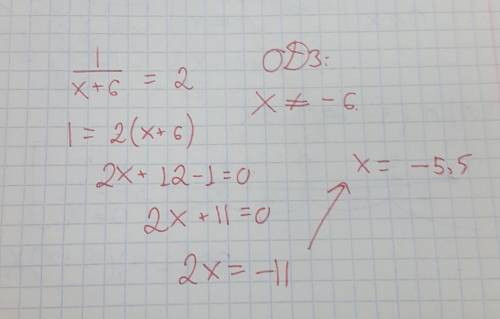 1/(x+6) = 2
ОДЗ:
x ≠ -6.
1 = 2(x+6)
2x + 12 - 1 = 0
2x + 11 = 0
2x = -11
x = -5,5